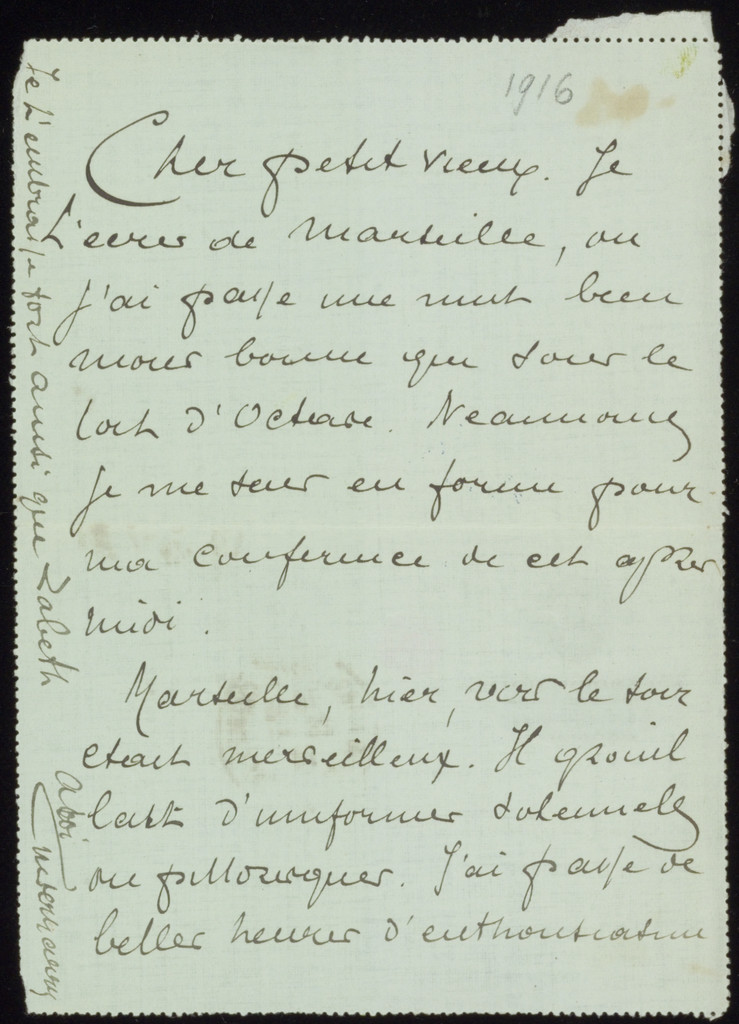 1916
Cher petit vieux. Je
t'ecris de Marseille, ou
j'ai passe une nuit bien
moins bonne que sous le
toit d'Octave. Neanmoins
je me sens en forme pour
ma conference de cet apres
midi.
Marseille, hier, vers le soir
etait merveilleux. Il grouil
lait d'uniformes solennels
ou pittoresques. J'ai passe de
belles heures d'enthousiasme
Je t'embrasse fort ainsi que Zabeth
a toi